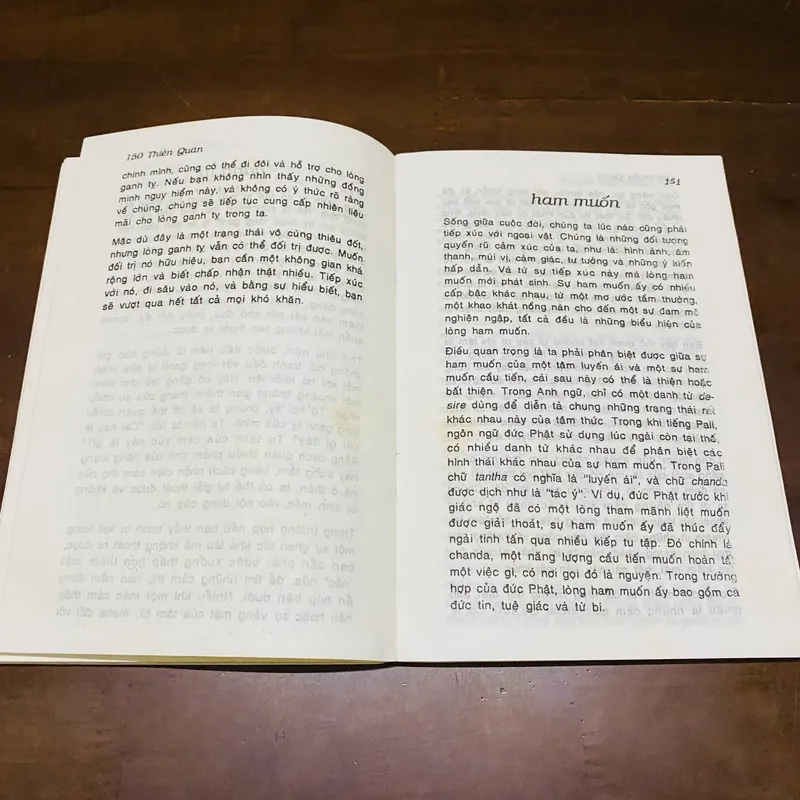 150 Thiền Quán
chính mình, cũng có thể đi đôi và hỗ trợ cho lòng
ganh tỵ. Nếu bạn không nhìn thấy những đồng
minh nguy hiểm này, và không có ý thức rõ ràng
về chúng, chúng sẽ tiếp tục cung cấp nhiên liệu
mãi cho lòng ganh tỵ trong ta.
Mặc dù đây là một trạng thái vô cùng thiêu đốt,
nhưng lòng ganh tỵ vẫn có thể đối trị được. Muốn
đối trị nó hữu hiệu, bạn cần một không gian khá
rộng lớn và biết chấp nhận thật nhiều. Tiếp xúc
với nó, đi sâu vào nó, và bằng sự hiểu biết, bạn
sẽ vượt qua hết tất cả mọi khó khăn.
151
ham muốn
Sống giữa cuộc đời, chúng ta lúc nào cũng phải
tiếp xúc với ngoại vật. Chúng là những đối tượng
quyến rũ cảm xúc của ta, như là: hình ảnh, âm
thanh, mùi vị, cảm giác, tư tưởng và những ý kiến
hấp dẫn. Và từ sự tiếp xúc này mà lòng ham
muốn mới phát sinh. Sự ham muốn ấy có nhiều
cấp bậc khác nhau, từ một mơ ước tầm thường,
một khao khát nồng nàn cho đến một sự đam mê
nghiện ngập, tất cả đều là những biểu hiện của
lòng ham muốn.
Điều quan trọng là ta phải phân biệt được giữa sự
ham muốn của một tâm luyến ái và một sự ham
muốn cầu tiến, cái sau này có thể là thiện hoặc
bất thiện. Trong Anh ngữ, chỉ có một danh từ de-
sire dùng để diễn tả chung những trạng thái rất
khác nhau này của tâm thức. Trong khi tiếng Pali,
ngôn ngữ đức Phật sử dụng lúc ngài còn tại thế,
có nhiều danh từ khác nhau để phân biệt các
hình thái khác nhau của sự ham muốn. Trong Pali
chữ tantha có nghĩa là "luyến ái", và chữ chanda
được dịch như là "tác ý". Ví dụ, đức Phật trước khi
giác ngộ đã có một lòng tham mãnh liệt muốn
được giải thoát, sự ham muốn ấy đã thúc đẩy
ngài tinh tấn qua nhiều kiếp tu tập. Đó chính là
chanda, một năng lượng cầu tiến muốn hoàn tất
một việc gì, có nơi gọi đó là nguyện. Trong trường
hợp của đức Phật, lòng ham muốn ấy bao gồm cả
đức tin, tuệ giác và từ bi.